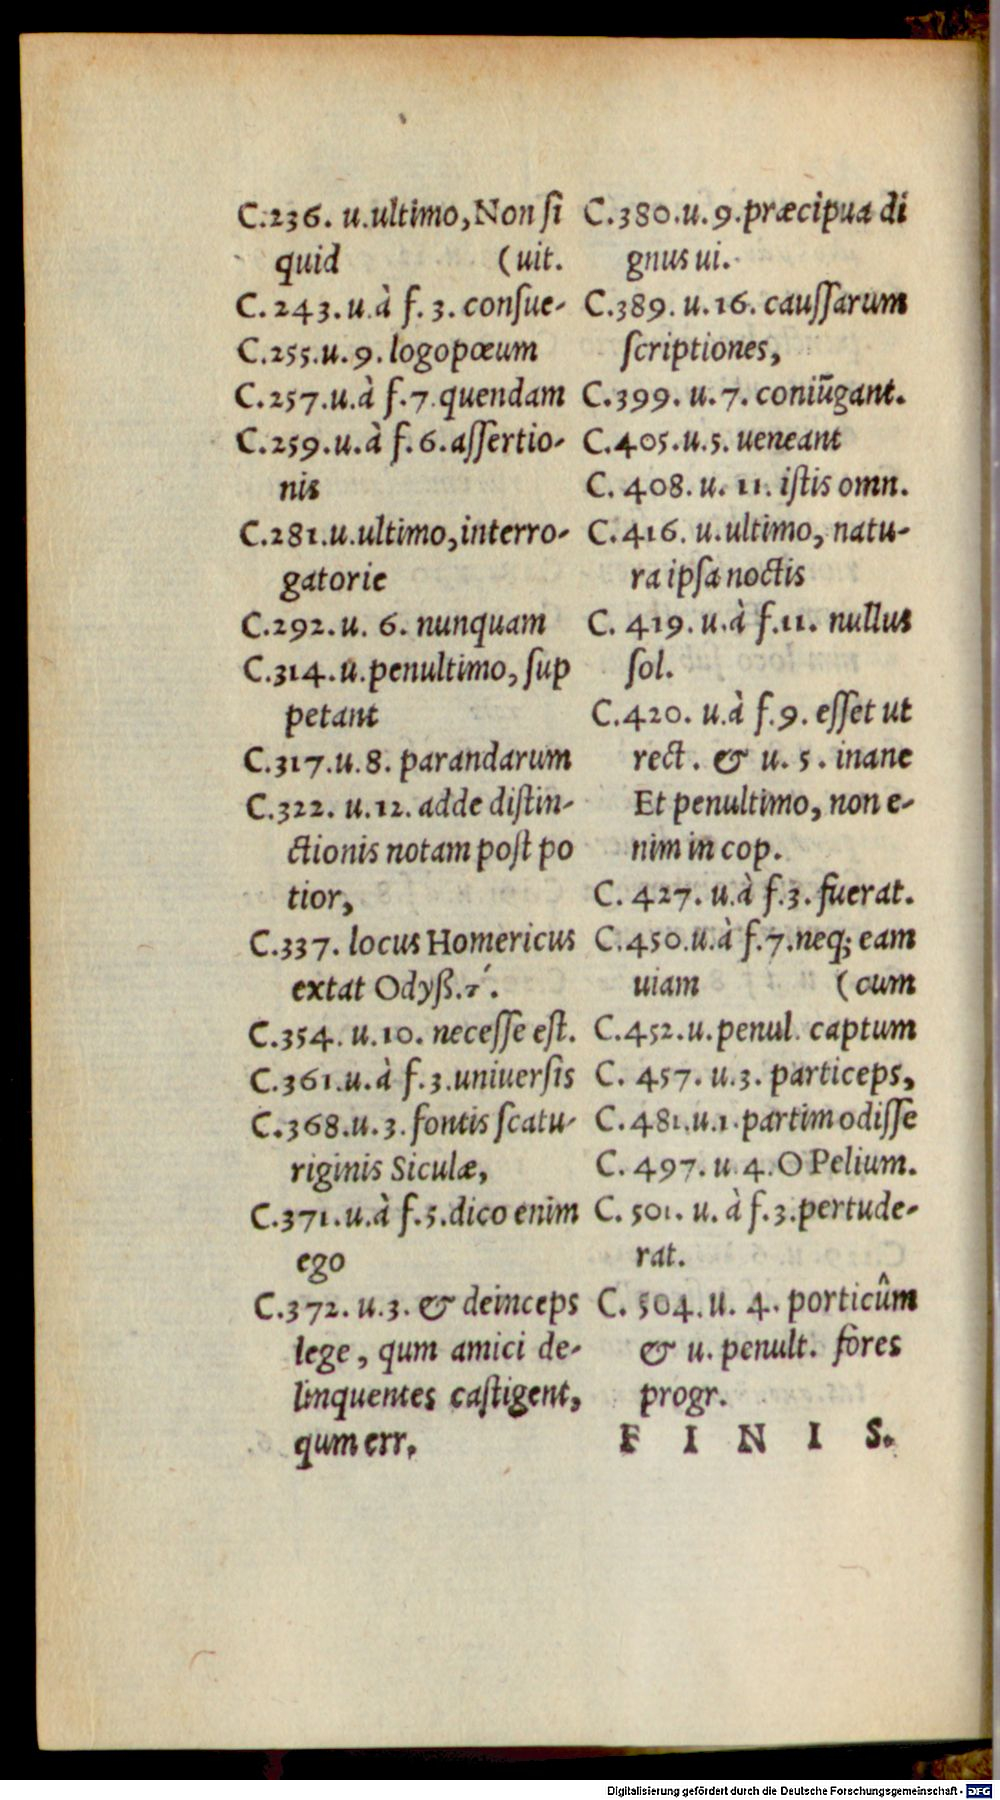 C.236. u.ultimo,Non ſi
quid (uit.
C. 243. u.à f. 3. conſue-
C.255.u. 9. logopœum
C. 257.u.à f.7.quendam
C.259.u.à f.6.aſſertio-
nis
C.281.u.ultimo,interro-
gatorie
C.292.u. 6. nunquam
C.314.u.penultimo, ſup
petant
C.317.u.8. parandarum
C.322. u.12. adde diſtin-
ctionis notam poſt po
tior,
C.337. locus Homericus
extat Odyß.
C.354. u.10. neceſſe eſt.
C.361.u.à f.3.uniuerſis
C.368.u.3.fontis ſcatu-
riginis Siculæ,
C.371.u.à f.5.dico enim
ego
C.372. u.3. & deinceps
lege, qum amici de-
linquentes caſtigent,
qum err.
C.380.u.9.præcipua di
gnus ui.
C.389. u.16. cauſſarum
ſcriptiones,
C.399. u.7. coniūgant.
C.405.u.5. ueneant
C. 408. u. 11. iſtis omn.
C.416. u.ultimo, natu-
ra ipſa noctis
C. 419. u.à f.11. nullus
ſol.
C.420. u.à f.9. eſſet ut
rect. & u. 5. inane
Et penultimo, non e-
nim in cop.
C. 427. u.à f.3. fuerat.
C.450.u.à f.7.neq; eam
uiam (cum
C.452.u.penul. captum
C. 457. u.3. particeps,
C.481.u.1.partim odiſſe
C. 497. u. 4. O Pelium.
C. 501. u. à f.3.pertude-
rat.
C. 504. u. 4. porticûm
& u. penult. fores
progr.
F I N I S.
Digitalisierung gefördert durch die Deutsche Forschungsgemeinschaft - DFG